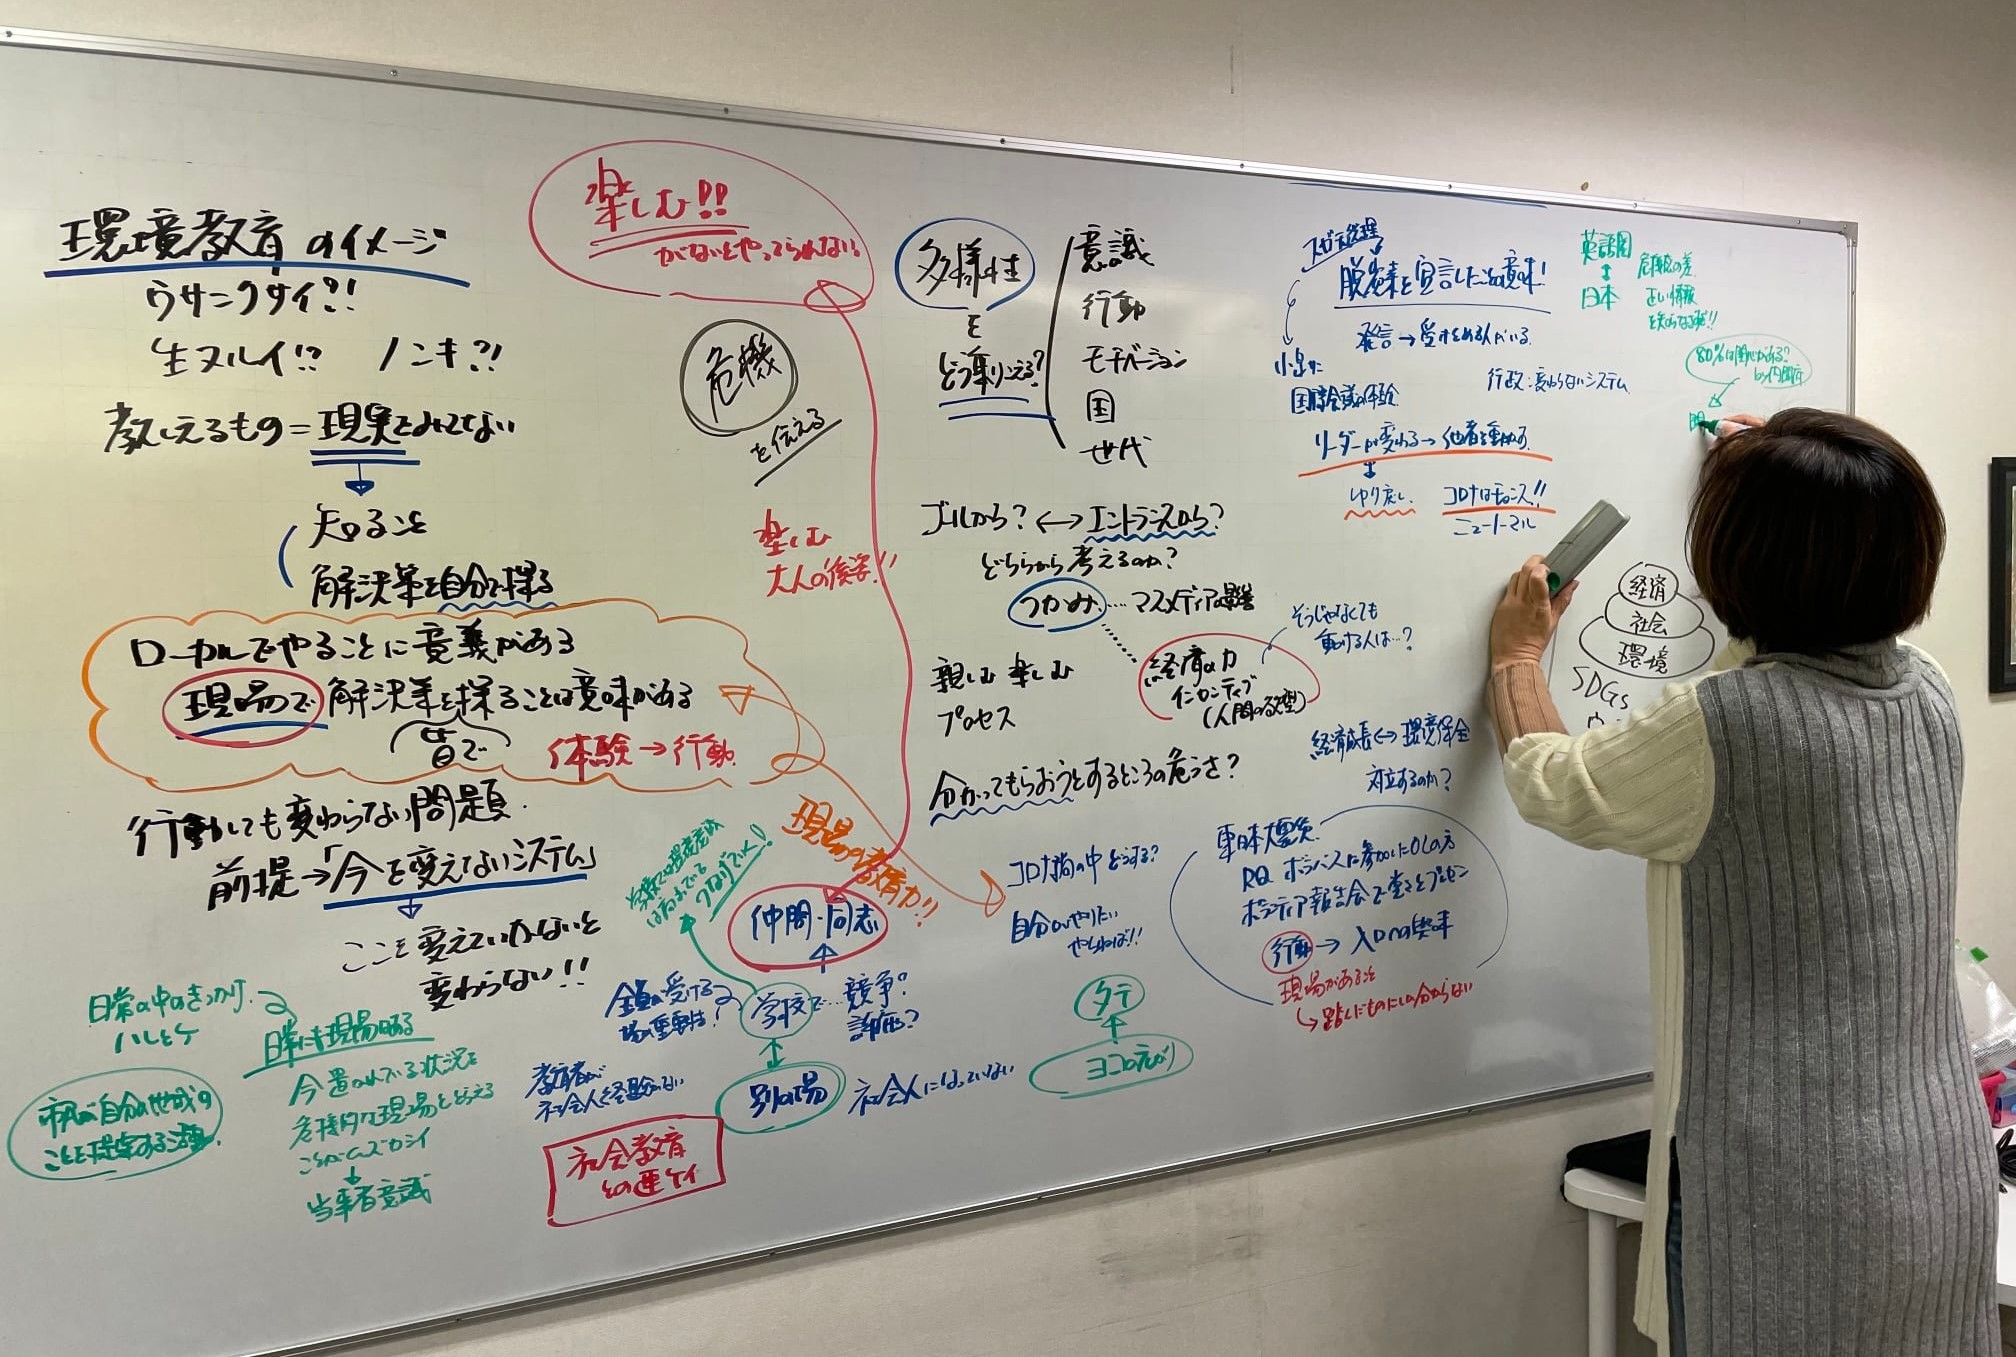 環境教育のイメージ
ウサンクサイ?!
生ヌルイ!? ノンキ?!
教えるもの=現実をみてない
知ること
解決策を自分で探る
ローカルでやることに意義がある
現場で解決策を探ることは意味がある
(皆で)
体験→行動
行動しても変わらない問題
前提→「今を変えないシステム」
ここを変えていかないと
変わらない!!
日常の中のきっかけ
ハレとケ
日常にも現場はある
今置かれている状況を
危機的な現場ととらえる
ことがムズカシイ
当事者意識
楽しむ!!
がないとやってられない
危機
を伝える
楽しむ
大人の後姿!!
現場の教育力!!
仲間・同志
学校で…競争?
評価?
別の場
社会人になっていない
教育者が
社会人を経験がない
社会教育
との連ケイ
多様性
を
どう乗りこえる?
意識
行動
モチベーション
国
世代
ゴールから?↔エントランスから?
どちらから考えるのか?
つかみ…マスメディアの影響
経済の力
インセンティブ
(人間の欲望)
そうじゃなくても
動ける人は…?
親しむ 楽しむ
プロセス
分かってもらおうとするところの危うさ?
コロナ禍の中どうする?
自分がやりたい
やらねば!!
タテ
ヨコの広がり
脱炭素を宣言した意味!
発言→受け止める人がいる
国際会議の体験
行政:変わらないシステム
リーダーが変わる→他者を動かす
ゆり戻し
コロナはチャンス!!
ニューノーマル
英語圏
日本
危機感の差
正しい情報
を知らなすぎ!!
80%は関心がある?
by内閣府
経済
社会
環境
SDGs
経済成長↔環境保全
対立するのか?
東日本大震災
RQ ボラバスに参加したOLの方
ボランティア報告会で堂々とプレゼン
行動→入口への興味
現場があること
→踏んだものにしか分からない